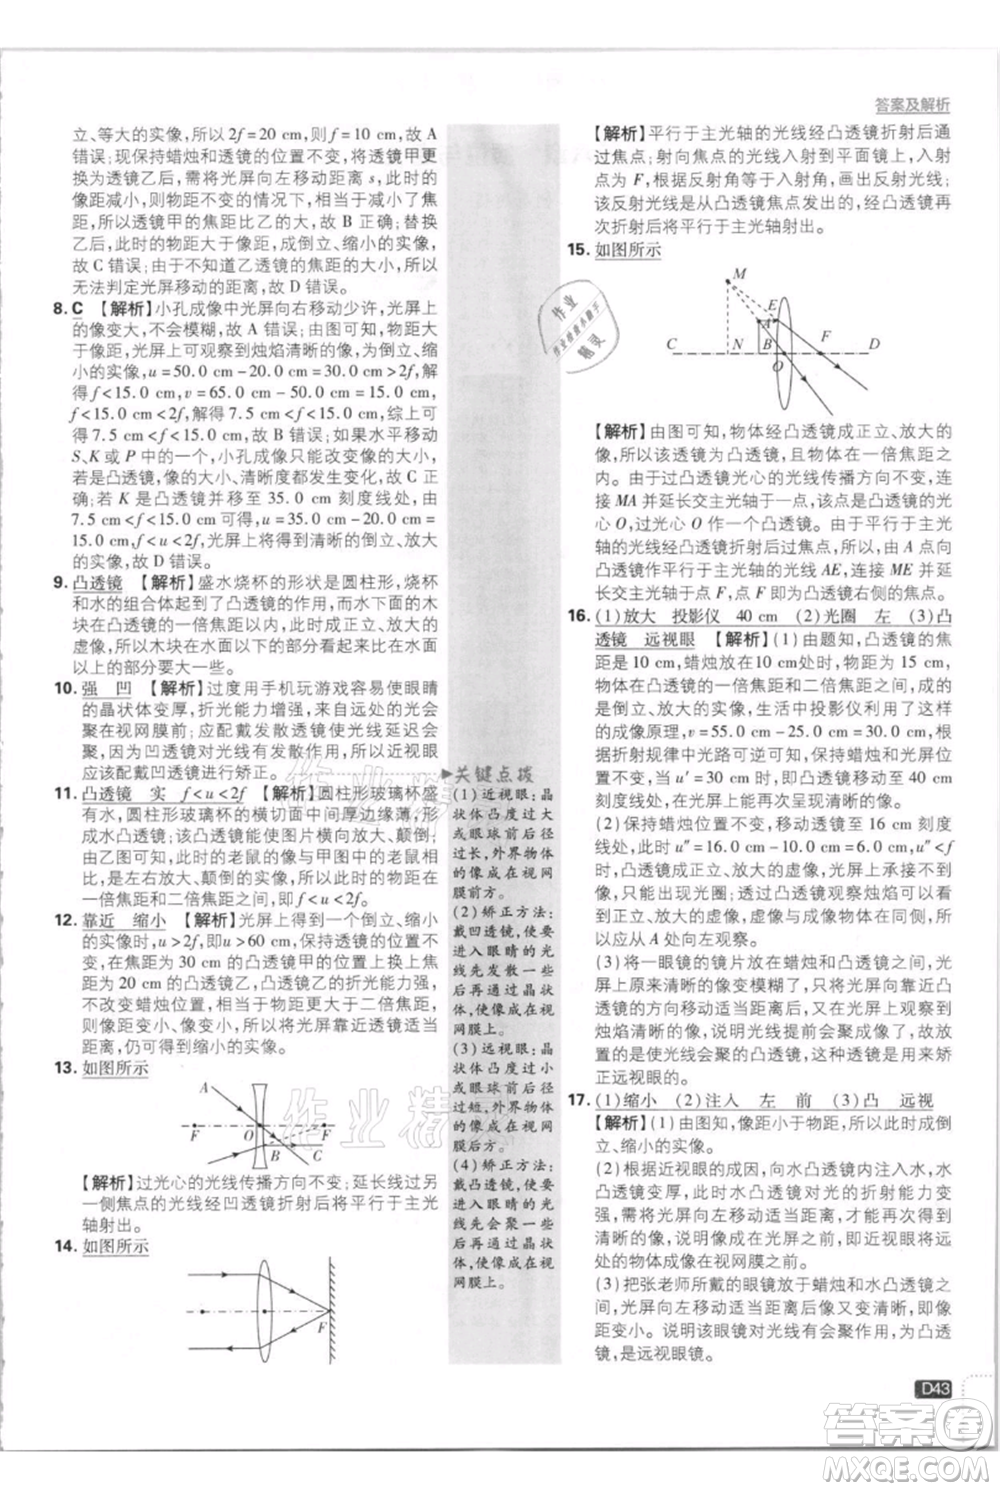 答案及解析
立、等大的实像,所以 2f=20 cm,则 f=10 cm,故 A
错误;现保持蜡烛和透镜的位置不变,将透镜甲更
换为透镜乙后,需将光屏向左移动距离 s,则是将
像距减小,则物距不变的情况下,像距变小了,所
以透镜甲的焦距比乙的大,故 B 正确;替换
乙后,此时的物距大于像距,成倒立、缩小的实像,
故 C 错误;由于不知道乙透镜的焦距的大小,所以
无法判定光屏移动的距离,故 D 错误。
8. C 【解析】小孔成像中光屏向右移动少许,光屏上
的像变大,不会模糊,故 A 错误;由图可知,物距大
于像距时,此时光屏上可观察到烛焰清晰的、倒立、缩
小的实像,u=50.0 cm-20.0 cm=30.0 cm>2f,解
得 f<15.0 cm,v=65.0 cm-50.0 cm=15.0 cm,
f<15.0 cm<2f,解得 7.5 cm<f<15.0 cm,综上可
得 7.5 cm<f<15.0 cm,故 B 错误;如果水平移动
S、K 或 P 中的一个,小孔成像只能改变像的大小,
而凸透镜,像的大小、清晰度都发生变化,故 C 正
确;若 K 是凸透镜并置于 35.0 cm 刻度线处,由
7.5 cm<f<15.0 cm可得,u=35.0 cm-20.0 cm=
15.0 cm,f<u<2f,光屏上可能得到清晰的倒立、放大
的实像,故 D 错误。
9. 凸透镜 【解析】盛水烧杯的形状是圆柱形,烧杯
和水的组合体起到了凸透镜的作用,而水下面的木
块在凸透镜的一倍焦距以内,此时成正立、放大的
虚像,所以木块在水面下的部分看起来比在水面
以上的部分要大一些。
10. 强 凹 【解析】过度用手机玩游戏容易使眼睛
的晶状体变厚,折光能力增强,来自远处点的光会
会聚在视网膜前;应配戴发散透镜使光线延迟会
聚,因为凹透镜对光线有发散作用,所以近视眼
应该配戴凹透镜进行矫正。
11. 凸透镜 实 f<u<2f 【解析】圆柱形玻璃杯盛
有水,圆柱形玻璃杯的横切面中间厚边缘薄,形
成一个水凸透镜,能使图片横向放大、颠倒,由图
乙可知,此时的老鼠的像与甲图中的老鼠的像相
比,是左右放大、颠倒的实像,所以此时的物距在
一倍焦距和二倍焦距之间,即 f<u<2f。
12. 靠近 缩小 【解析】光屏上得到一个倒立、缩小
的实像时,u>2f,即 u>60 cm,保持透镜的位置不
变,在焦距为 30 cm 的透镜甲的位置上换上焦距
为 20 cm 的凸透镜乙,透镜乙的折光能力增强,
不改变蜡烛的位置,此时物距大于二倍焦距,
则像距变小、像变小,将光屏靠近透镜适当距
离,仍可得到缩小的实像。
13. 如图所示
A
F O B C F
【解析】过光心的光线传播方向不变;延长线过另
一侧焦点的光线经凹透镜折射后将平行于主光
轴射出。
14. 如图所示
F
关键点拨
(1)近视眼:晶
状体凸度过大
或眼球前后径
过长,外界物体
的像成在视网
膜前方。
(2)矫正方法:
戴凹透镜,使要
进入眼睛的光
线先发散一些
后再通过晶状
体,使像成在视
网膜上。
(3)远视眼:晶
状体凸度太小
或眼球前后径
太短,外界物体
的像成在视网
膜后方。
(4)矫正方法:
戴凸透镜,使要
进入眼睛的光
线先会聚一些
后再通过晶状
体,使像成在视
网膜上。
【解析】平行于主光轴的光线经凸透镜折射后通
过焦点;射向焦点的光线入射到平面镜上,入射
点为 F,根据反射角等于入射角,画出反射光线;
该反射光线是从凸透镜焦点发出的,经凸透镜再
次折射后将平行于主光轴射出。
15. 如图所示
M
E
A
C N B O F D
【解析】由图可知,物体经凸透镜成正立、放大的
像,所以该透镜为凸透镜,且物体在一倍焦距以
内。由于过凸透镜光心的光线传播方向不变,连
接 MA 并延长交主光轴于一点,该点是凸透镜的光
心 O,过光心 O 作一个凸透镜。由于平行于主光
轴的光线经凸透镜折射后过焦点,所以,由 A 点向
凸透镜作平行于主光轴的光线 AE,连接 ME 并延
长交主光轴于点 F,点 F 即为凸透镜右侧的焦点。
16. (1)放大 投影仪 40 cm (2)光圈 左 (3)凸
透镜 远视眼 【解析】(1)由题知,凸透镜的焦
距是 10 cm,蜡烛放在10 cm处时,此时物距为 u=
15 cm,在凸透镜的一倍焦距和二倍焦距之间,成的
是倒立、放大的实像,生活中投影仪利用了这样
的成像原理,v=55.0 cm-25.0 cm=30.0 cm;根
据折射规律中光路可逆可知,保持蜡烛和光屏位
置不动,当 u'=30 cm时,透镜移动至 40 cm 刻
度处,在光屏上能再次呈现清晰的像。
(2)保持蜡烛位置不变,移动透镜至 16 cm 刻度
线处,此时 u"=16.0 cm-10.0 cm=6.0 cm,u"<f
时,凸透镜成正立、放大的虚像,光屏上承接不到
像,只能出现光圈;通过凸透镜观察烛焰,可以看
到正立、放大的虚像,虚像与物体在同侧,所以眼
应从 A 处向左观察。
(3)将一眼镜的镜片放在蜡烛和凸透镜之间,光
屏上原来清晰的像变模糊了,只将光屏靠近凸
透镜的方向移动适当距离后又在光屏上观察到
烛焰清晰的像,说明光线提前会聚成像了,故放
置的是使光线会聚的凸透镜,这种透镜是用来矫
正远视眼的。
17. (1)缩小 (2)注入 左 前 (3)凸 远视
【解析】(1)由图知,像距小于物距,此时成倒
立、缩小的实像。
(2)根据近视眼的成因,向水凸透镜内注入水,水
凸透镜变厚,此时水凸透镜对光的折射能力变
强,需将光屏向左移动适当距离,所以近视眼看远
处的物体成像在视网膜之前。
(3)把张老师所戴的眼镜放于蜡烛和水凸透镜之
间,光屏向左移动适当距离后像又变清晰,即像
距变小。说明该眼镜对光线有会聚作用,为凸透
镜,是远视眼镜。
D43
答案卷
MXQE.COM